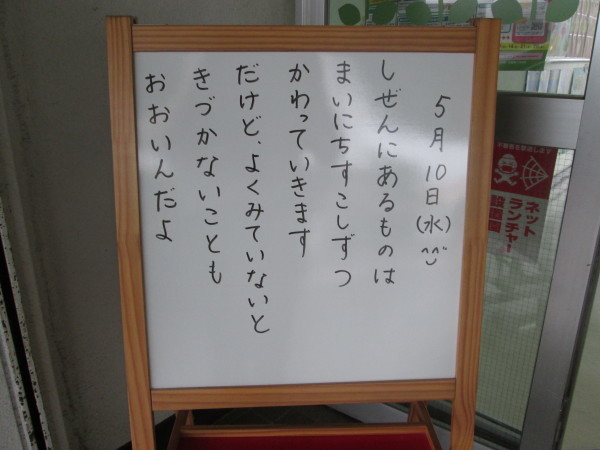 5月10日(水)^^
しぜんにあるものは
まいにちすこしずつ
かわっていきます
だけど、よくみていないと
きづかないことも
おおいんだよ
ネット
ランチャー
設置園